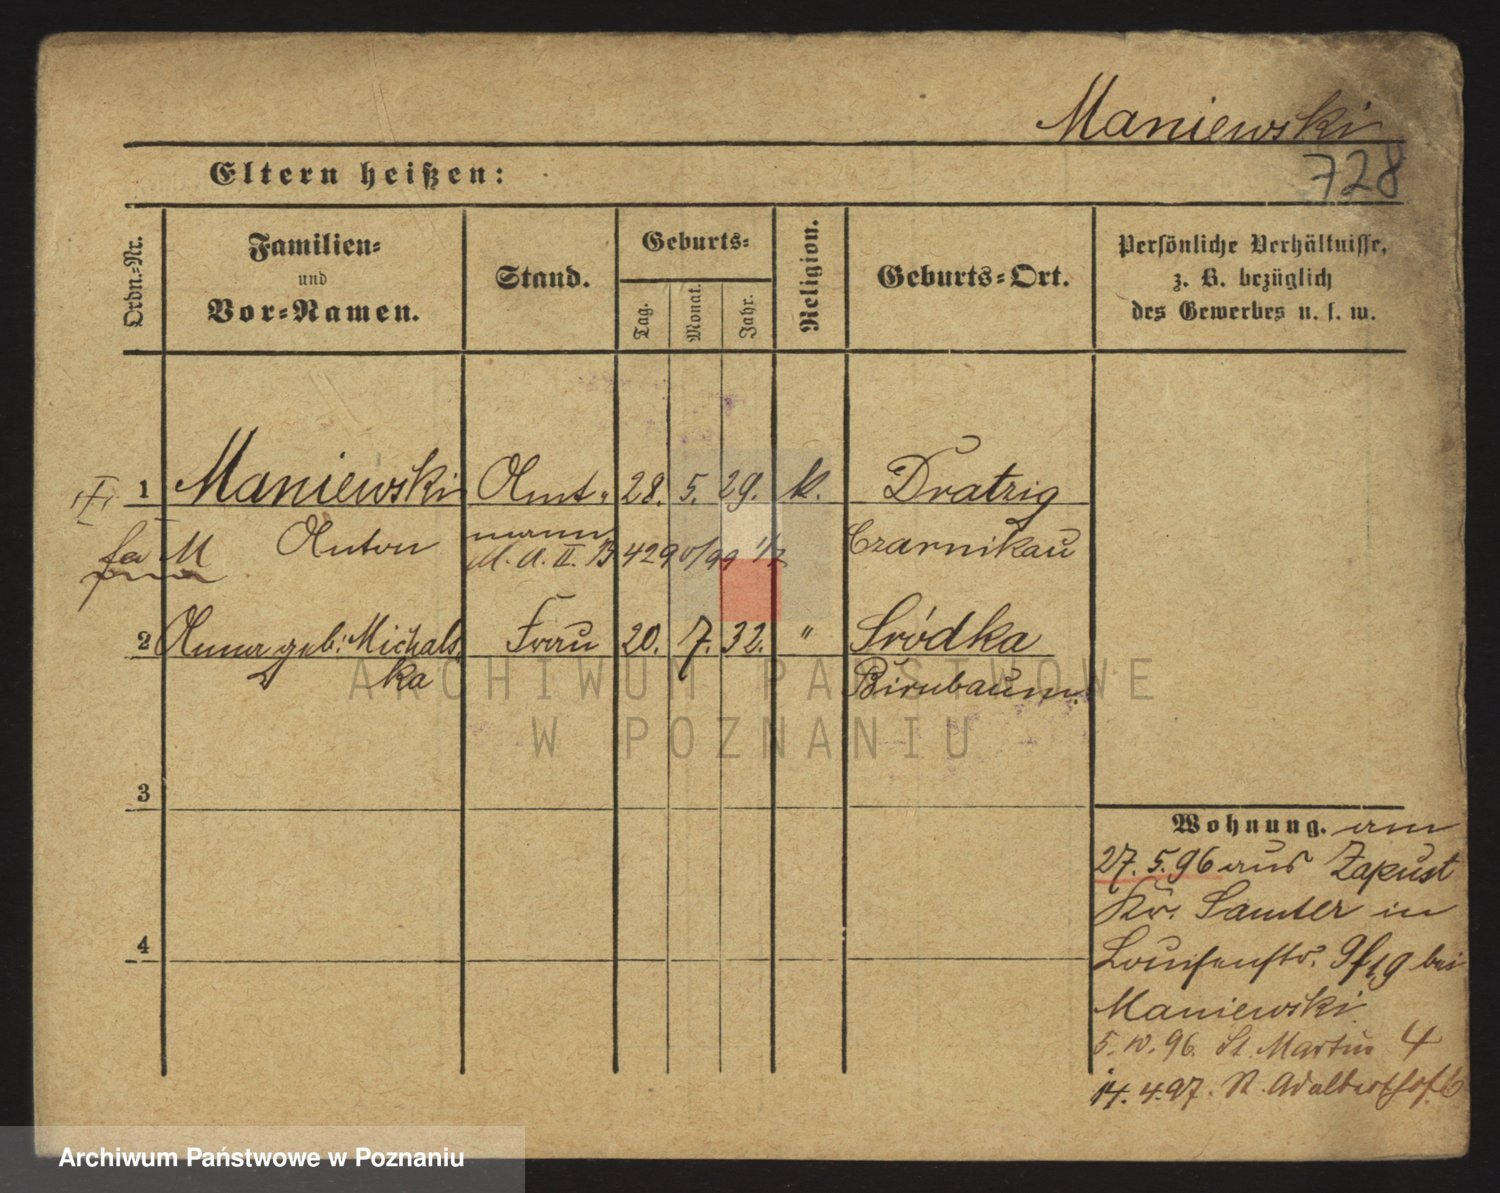 Maniewski
728
Eltern heißen:
Ordn.-Nr.
Familien-
und
Vor-Namen.
Stand.
Geburts-
Tag.
Monat.
Jahr.
Religion.
Geburts-Ort.
Persönliche Verhältnisse,
z. B. bezüglich
des Gewerbes u. s. w.
1 Maniewski Amt- 28. 5. 29. k. Dratzig
Anton mann Czarnikau
M. A. II. B 429
2 Anna geb: Michals- Frau 20. 7. 32. " Sródka
ka Birnbaum.
3
4
Wohnung. am
27. 5. 96 aus Zapust
Kr. Samter in
Louisenstr. bei
Maniewski
5. 10. 96. St. Martin 4
14. 4. 97. St. Adalberthof. 6
ARCHIWUM PAŃSTWOWE
W POZNANIU
Archiwum Państwowe w Poznaniu